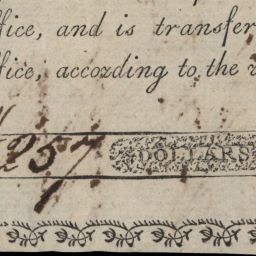 ffice, and is transfer
ffice, according to the r
257
DOLLARS